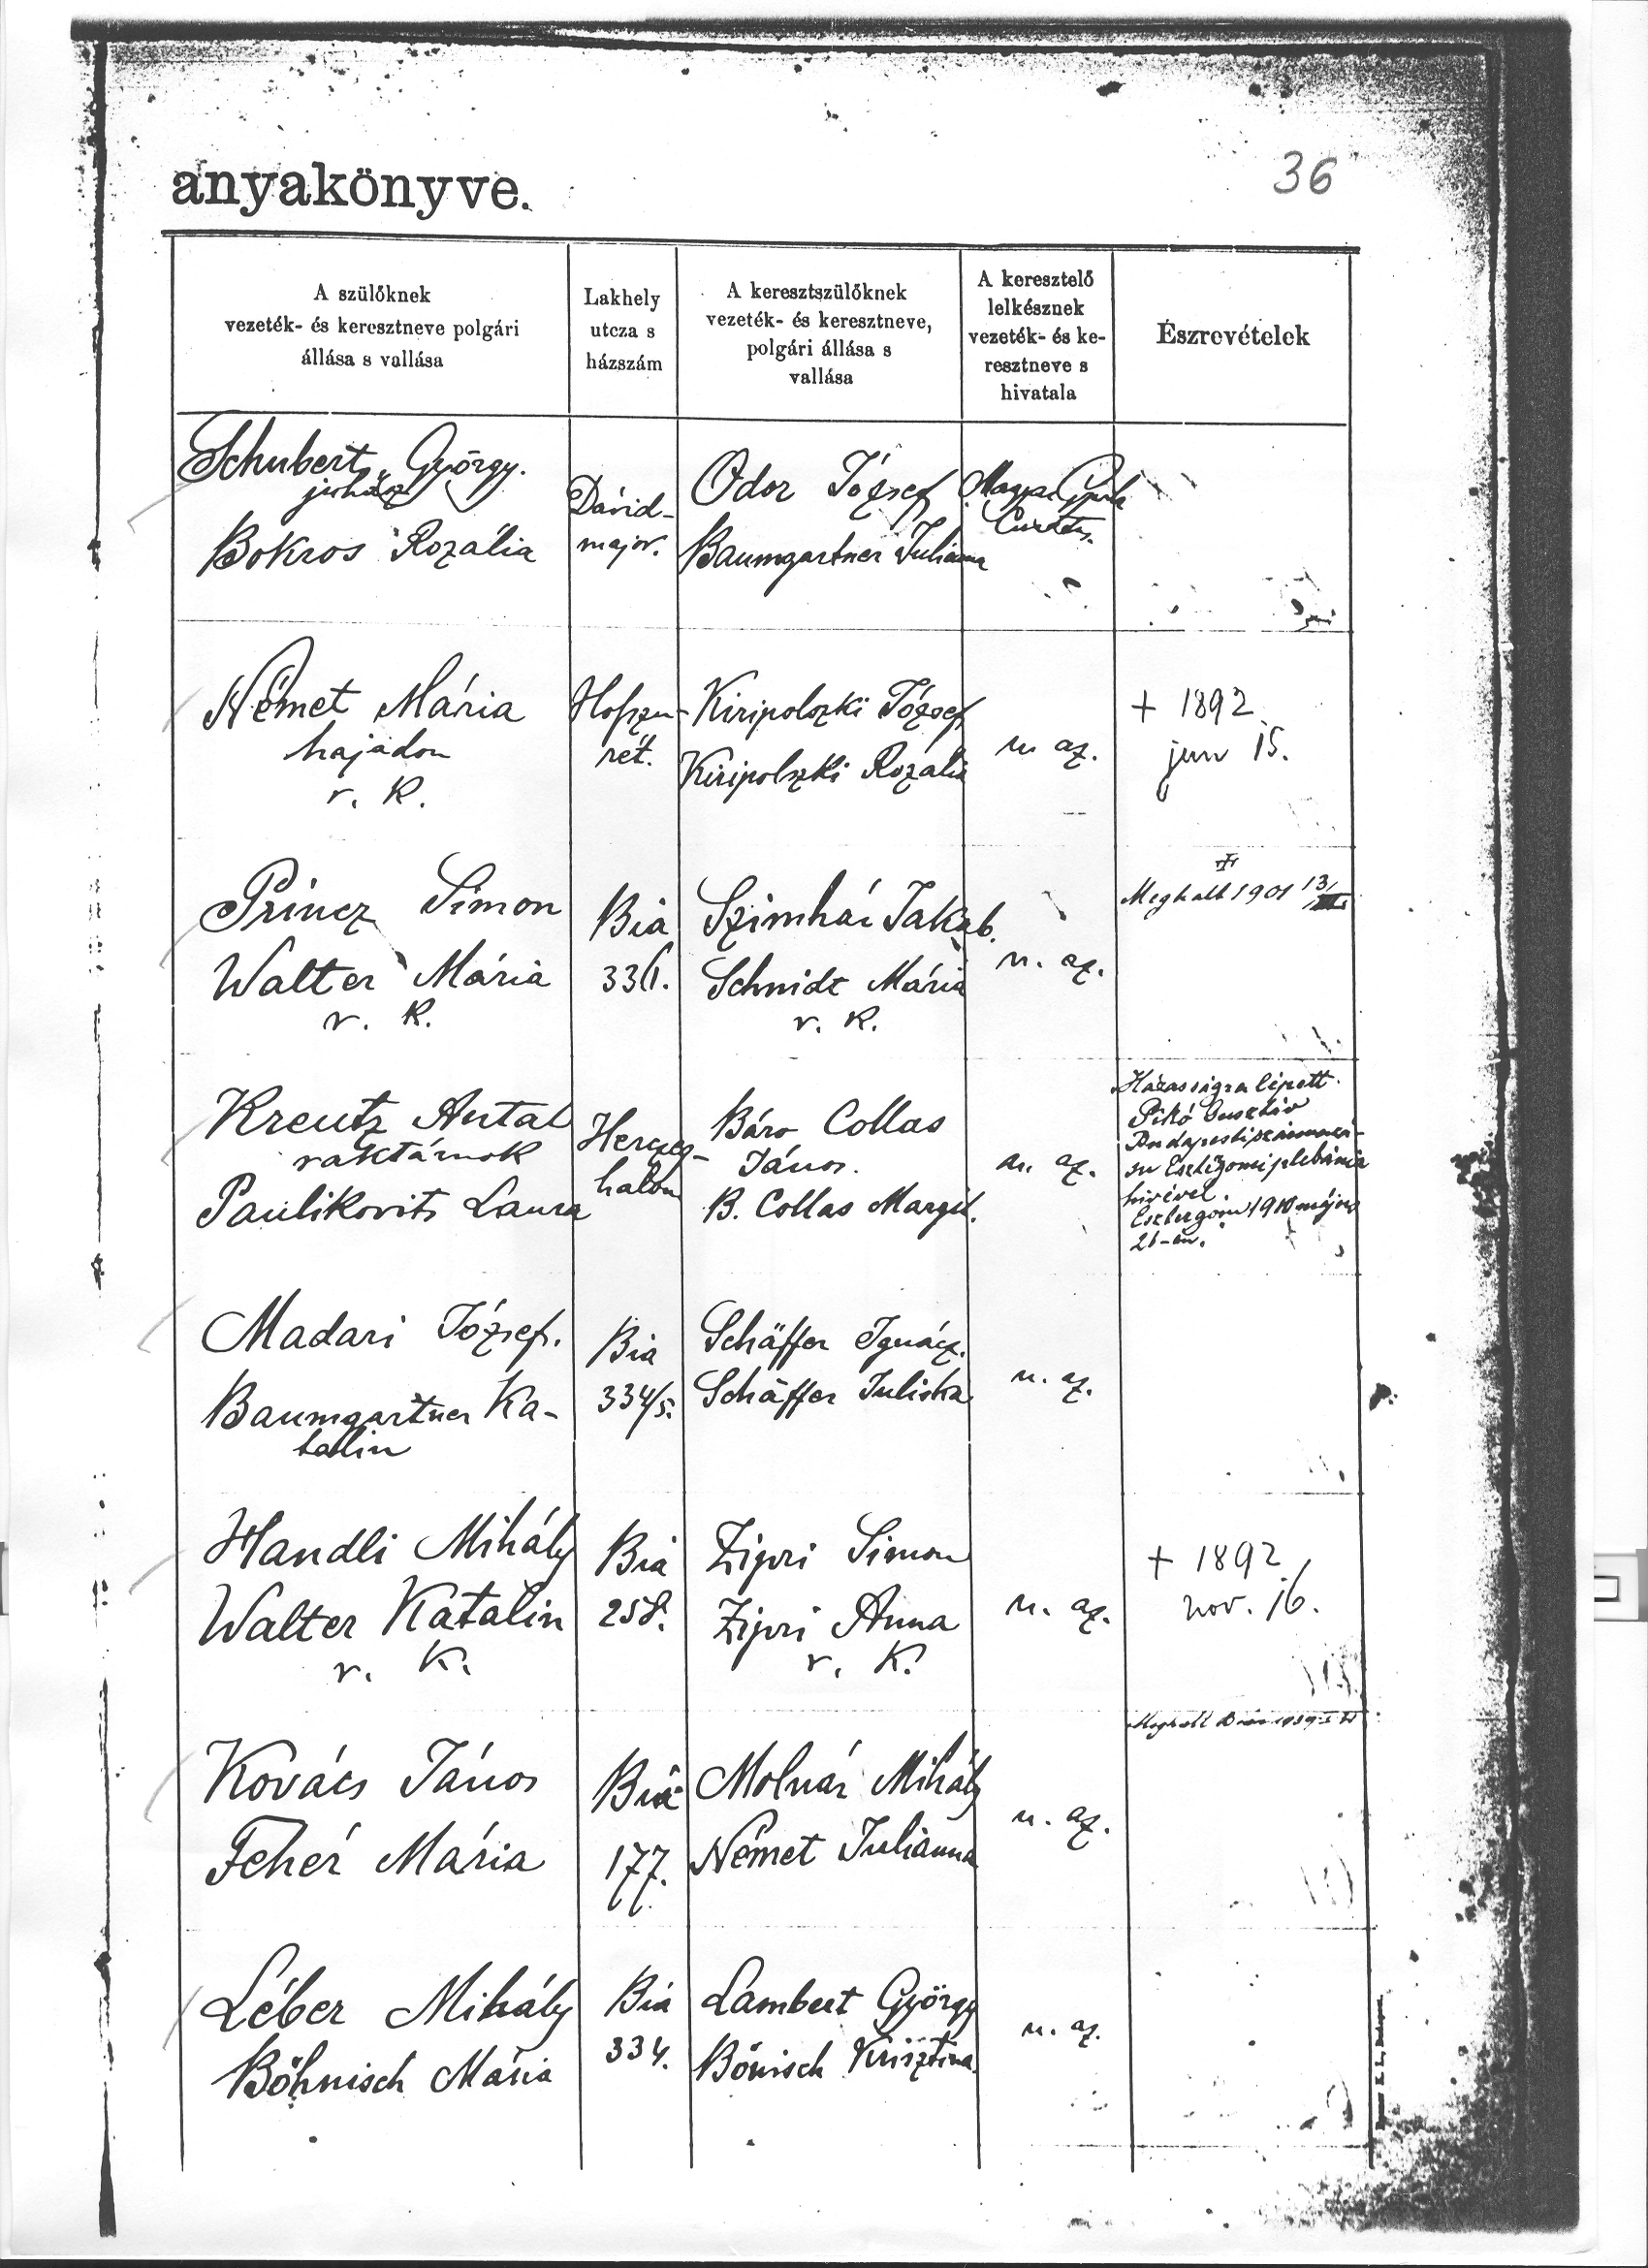 36
anyakönyve.
A szülőknek
vezeték- és keresztneve polgári
állása s vallása
Lakhely
utcza s
házszám
A keresztszülőknek
vezeték- és keresztneve,
polgári állása s
vallása
A keresztelő
lelkésznek
vezeték- és ke-
resztneve s
hivatala
Észrevételek
Schubert György.
juhász
Bokros Rozália
Dávid-
major.
Odor József
Baumgartner Julianna
Magyar Gyula
Németh Mária
hajadon
r. k.
rét.
Kiripolszki József
Kiripolszki Rozália
u. az.
+ 1892
jun 15.
Princz Simon
Walter Mária
r. k.
Bia
Szimhár Jakab.
Schmidt Mária
r. k.
u. az.
Meghalt 1901 13/
Kreutz Antal
raktárnok
Paulikovits Laura
Herczeg-
halom
Báro Collas
János.
B. Collas Margit.
u. az.
Házasságra lépett
Pikó Gusztáv
hívével.
Esztergom 1910 május
Madari József.
Baumgartner Ka-
talin
Bia
334/5.
Schäffer Ignácz.
Schäffer Juliska
u. az.
Handli Mihály
Walter Katalin
r. k.
Bia
258.
Zipri Simon
Zipri Anna
r. k.
u. az.
+ 1892
nov. 16.
Kovács János
Fehér Mária
Bia
177.
Molnár Mihály
Német Julianna
u. az.
Meghalt
Léber Mihály
Böhnisch Mária
Bia
334.
Lambert György
Bönisch Krisztina
u. az.